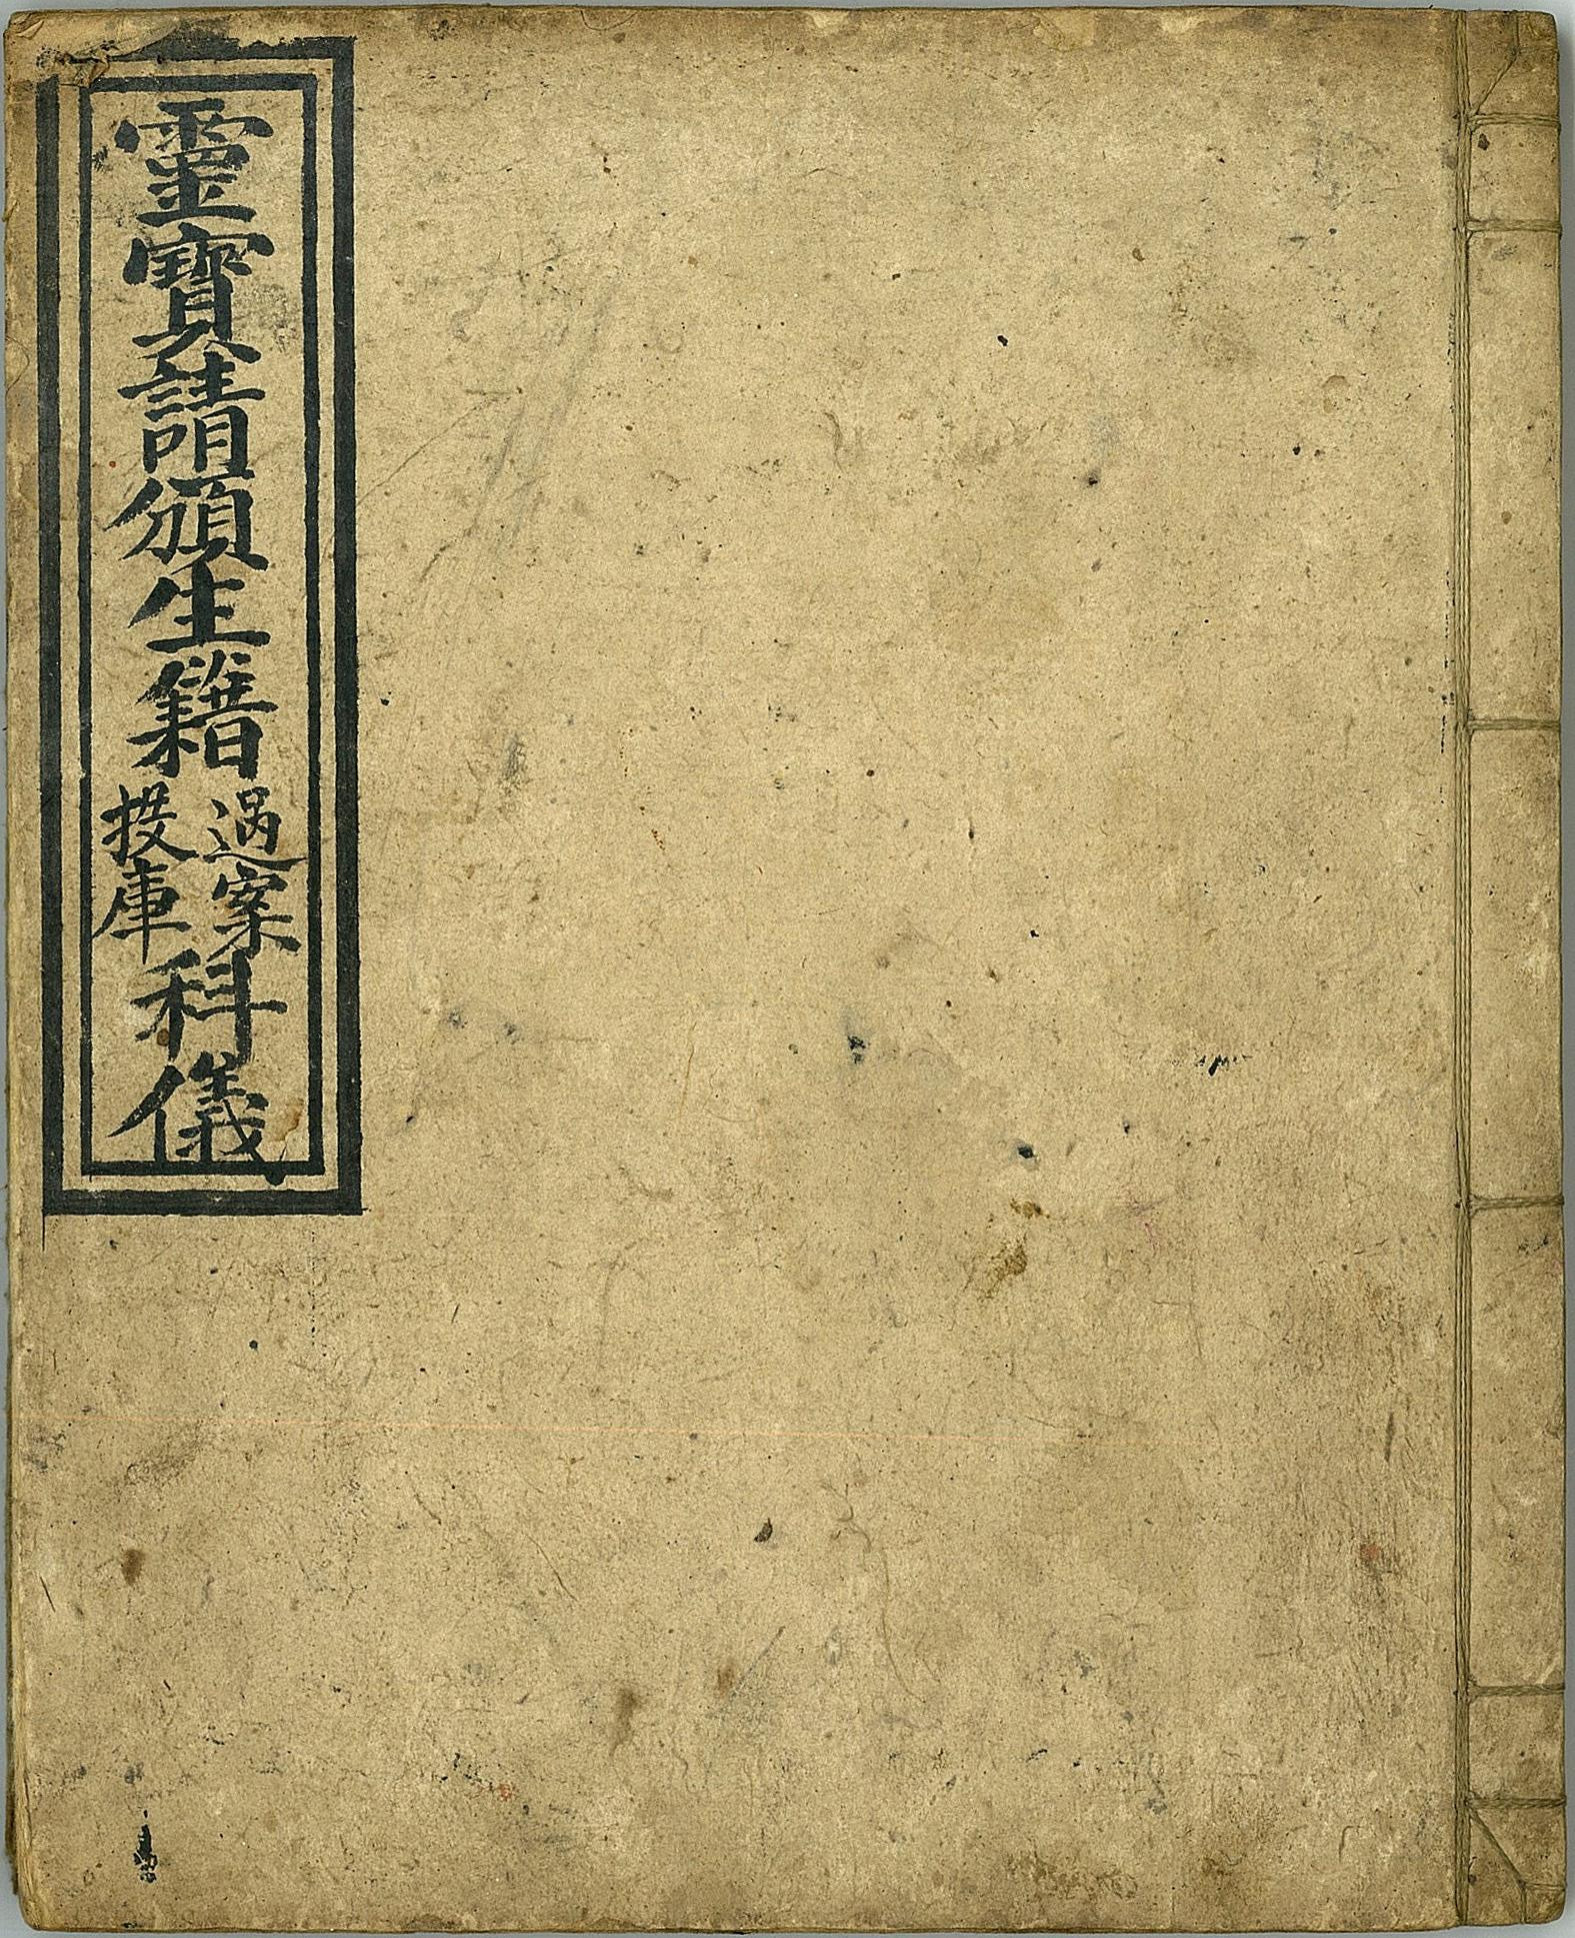 靈寶請頒生籍
過案
投庫
科儀